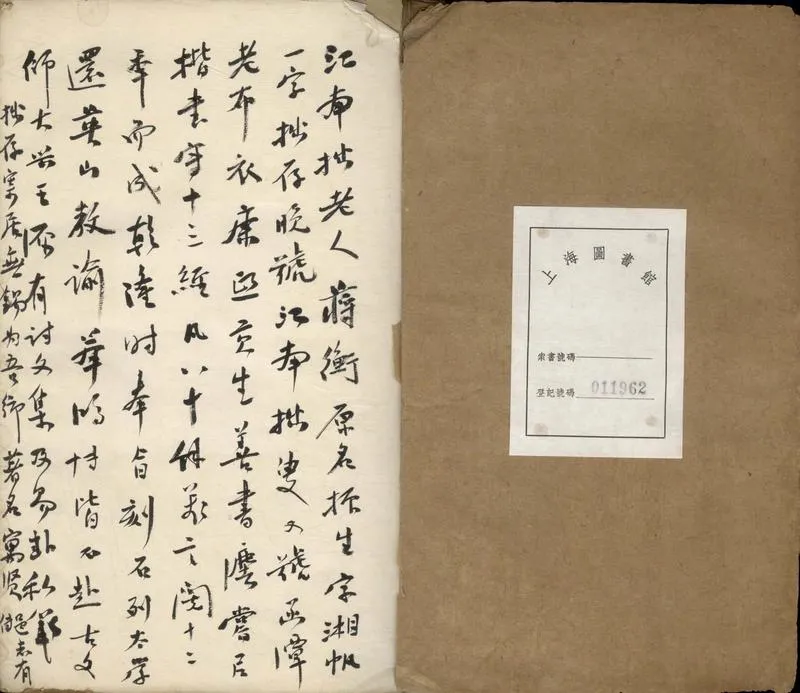 江南拙老人蔣衡原名振生字湘帆
一字拙存晚號江南拙叟又號函潭
老布衣康熙貢生善書嘗以
楷書寫十三經凡八十餘萬言閱十二
年而成乾隆時奉旨刻石列太學
選英山教諭舉鴻博皆不赴古文
師大興王源有詩文集及易卦私箋
拙存寄居無錫為吾鄉著名寓賢邑志有傳
上海圖書館
索書號碼
登記號碼 011962